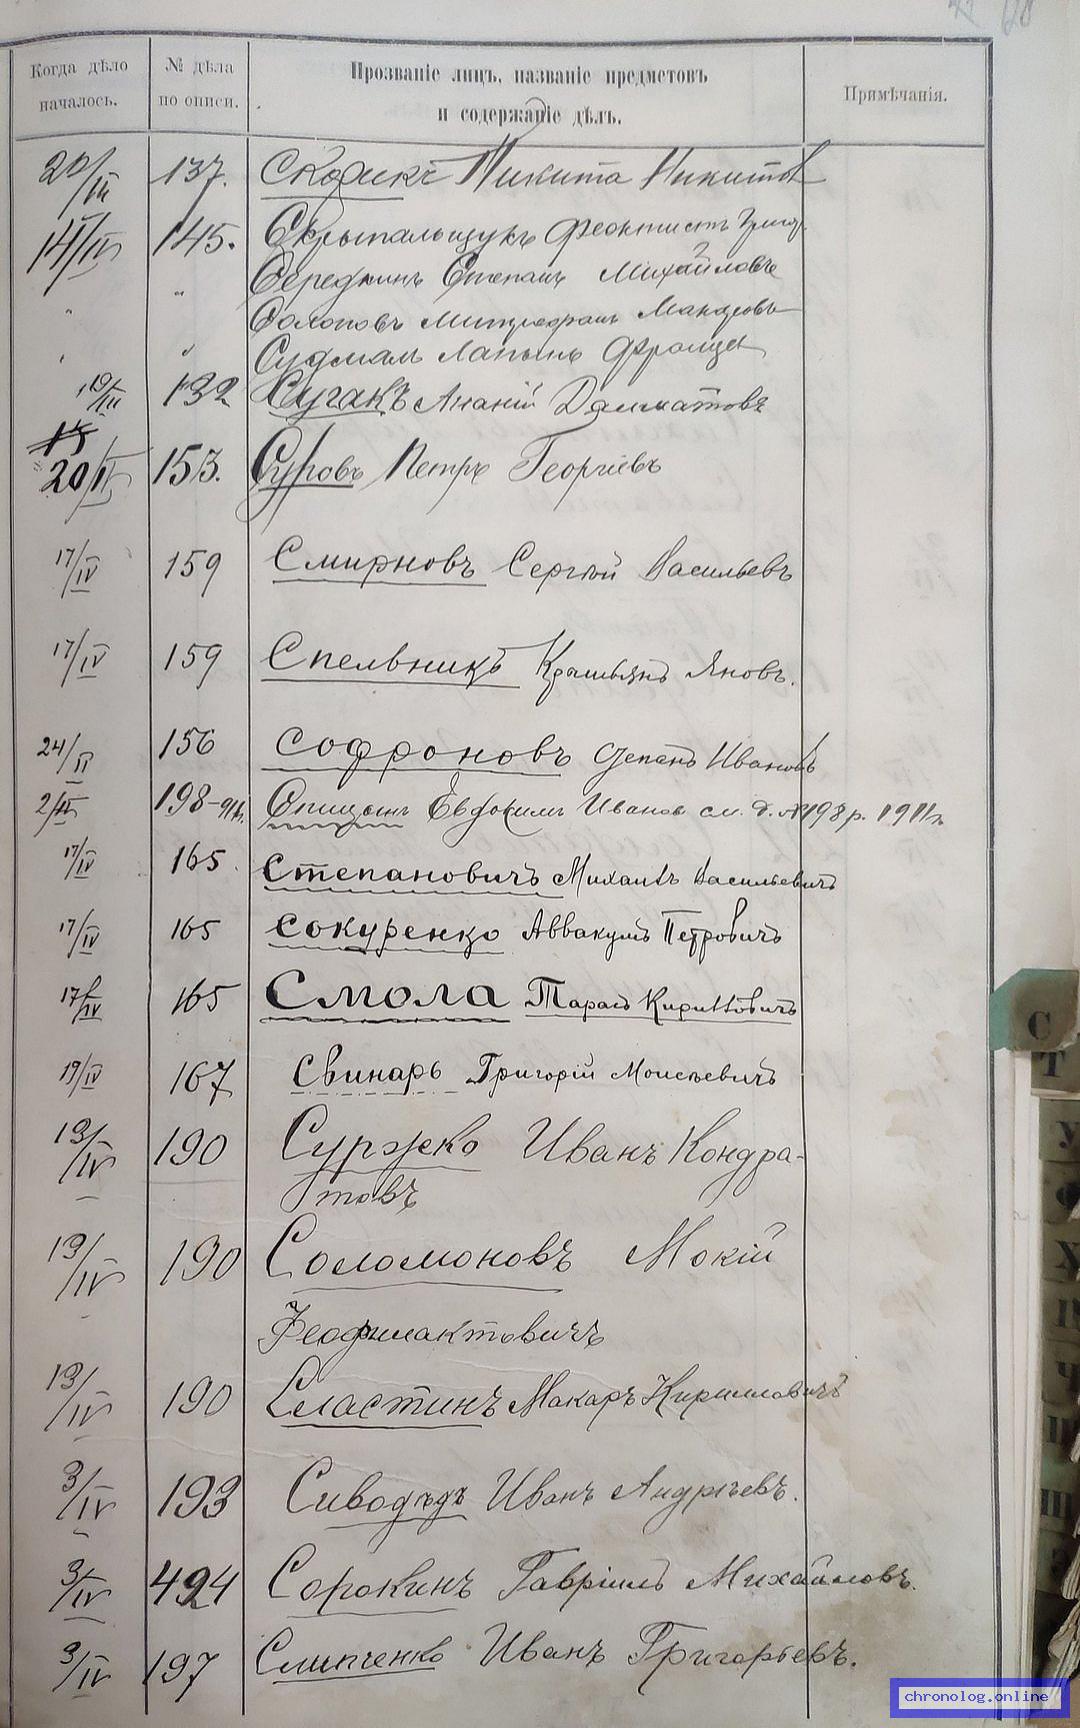 Когда дѣло началось.
№ дѣла по описи.
Прозваніе лицъ, названіе предметовъ и содержаніе дѣлъ.
Примѣчанія.
137. Никита Никитов
14/IV 145. Скрыпальщукъ Феоктистъ Григор.
" Середкинъ Степанъ Михайловъ
" " Солоповъ Митрофанъ
" "
19/III 132 Сугакъ Ананій Далматовъ
20/IV 153. Суровъ Петръ Георгіевъ
17/IV 159 Смирновъ Сергѣй Васильевъ
17/IV 159 Спельникъ Яновъ.
24/II 156 Софроновъ Степанъ Ивановъ
198 Спицынъ Евдокимъ Иванов см. д. №198 р. 1911г.
17/IV 165. Степановичъ Михаилъ Васильевичъ
17/IV 165 Сокуренко Аввакумъ Петровичъ
17/IV 165 Смола Тарасъ Кирилловичъ
19/IV 167 Свинарь Григорій Моисѣевичъ
13/IV 190 Суржко Иванъ Кондра-
товъ
13/IV 190 Соломоновъ Мокій
Феофилактовичъ
13/IV 190 Сластинъ Макаръ Кирилловичъ
3/IV 193 Сиводѣдъ Иванъ Андрѣевъ.
3/IV 494 Сорокинъ Гавріилъ Михайловъ.
3/IV 197 Слипченко Иванъ Григорьевъ.
С
Т
У
Ф
Х
Ч
Ш
chronolog.online